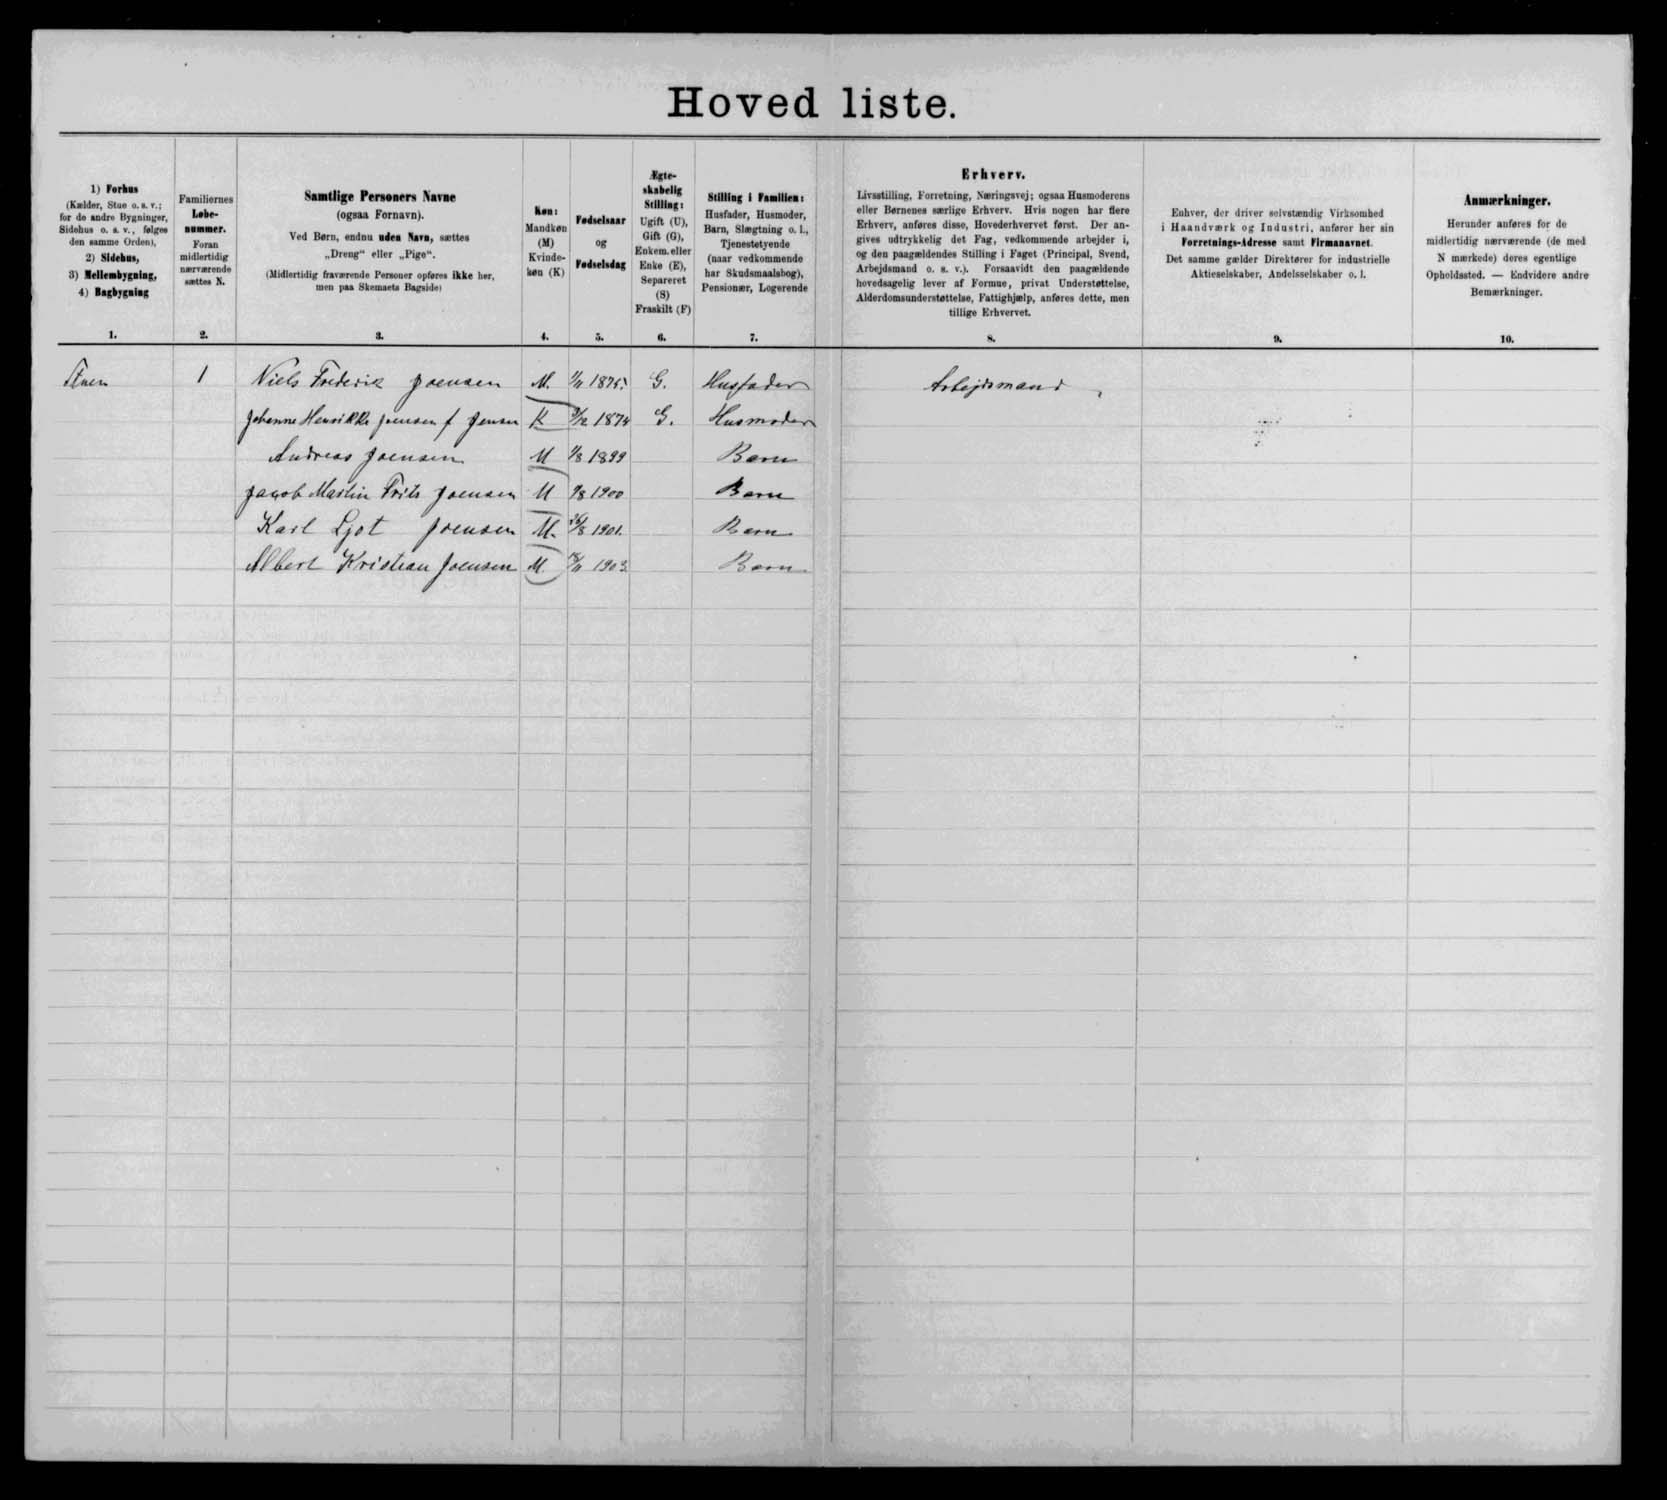 Hoved liste.
1) Forhus
(Kælder, Stue o. s. v.;
for de andre Bygninger,
Sidehus o. s. v., følges
den samme Orden),
2) Sidehus,
3) Mellembygning,
4) Bagbygning
1.
Familiernes
Løbe-
nummer.
Foran
midlertidig
nærværende
sættes N.
2.
Samtlige Personers Navne
(ogsaa Fornavn).
Ved Børn, endnu uden Navn, sættes
„Dreng“ eller „Pige“.
(Midlertidig fraværende Personer opføres ikke her,
men paa Skemaets Bagside)
3.
Køn:
Mandkøn
(M)
Kvinde-
køn (K)
4.
Fødselsaar
og
Fødselsdag
5.
Ægte-
skabelig
Stilling:
Ugift (U),
Gift (G),
Enkem. eller
Enke (E),
Separeret
(S)
Fraskilt (F)
6.
Stilling i Familien:
Husfader, Husmoder,
Barn, Slægtning o. l.,
Tjenestetyende
(naar vedkommende
har Skudsmaalsbog),
Pensionær, Logerende
7.
Erhverv.
Livsstilling, Forretning, Næringsvej; ogsaa Husmoderens
eller Børnenes særlige Erhverv. Hvis nogen har flere
Erhverv, anføres disse, Hovederhvervet først. Der an-
gives udtrykkelig det Fag, vedkommende arbejder i,
og den paagældendes Stilling i Faget (Principal, Svend,
Arbejdsmand o. s. v.). Forsaavidt den paagældende
hovedsagelig lever af Formue, privat Understøttelse,
Alderdomsunderstøttelse, Fattighjælp, anføres dette, men
tillige Erhvervet.
8.
Enhver, der driver selvstændig Virksomhed
i Haandværk og Industri, anfører her sin
Forretnings-Adresse samt Firmanavnet.
Det samme gælder Direktører for industrielle
Aktieselskaber, Andelsselskaber o. l.
9.
Anmærkninger.
Herunder anføres for de
midlertidig nærværende (de med
N mærkede) deres egentlige
Opholdssted. — Endvidere andre
Bemærkninger.
10.
Stuen 1 Niels Frederik Joensen M. 1/11 1875. G. Husfader Arbejdsmand
Johanne Henrikke Joensen f Jensen K /12 1874 G. Husmoder
Andreas Joensen M /8 1899 Barn
Jacob Martin Frits Joensen M 9/8 1900 Barn
Karl Ljot Joensen M. 26/8 1901. Barn
Albert Kristian Joensen M. 18/11 1903. Barn